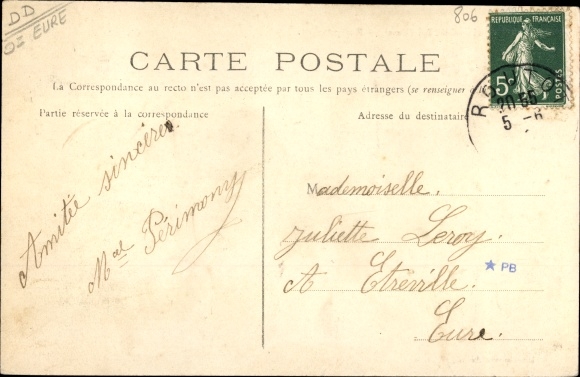 DD
EURE
806
RÉPUBLIQUE FRANÇAISE
5
POSTES
20 55
5 -
CARTE POSTALE
La Correspondance au recto n'est pas acceptée par tous les pays étrangers (se renseigner
Partie réservée à la correspondance
Adresse du destinataire
Amitée sincères
Mel Périmony
Mademoiselle.
Juliette Leroy.
A Etréville.
★ PB
Eure.